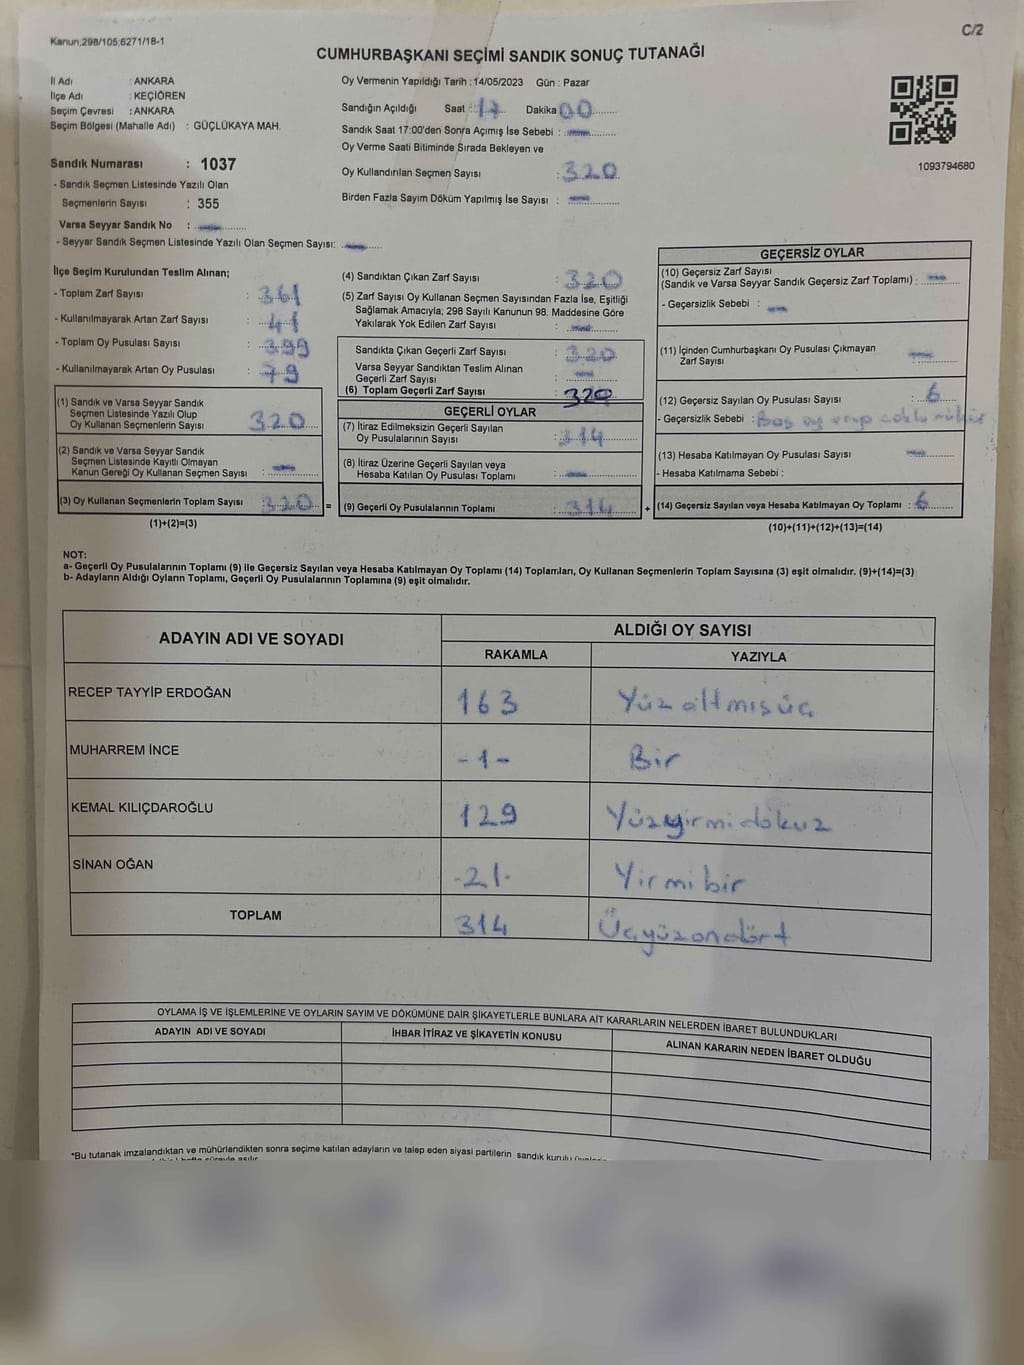 Kanun;298/105;6271/18-1
C/2
CUMHURBAŞKANI SEÇİMİ SANDIK SONUÇ TUTANAĞI
İl Adı : ANKARA
İlçe Adı : KEÇİÖREN
Seçim Çevresi : ANKARA
Seçim Bölgesi (Mahalle Adı) : GÜÇLÜKAYA MAH.
Sandık Numarası : 1037
- Sandık Seçmen Listesinde Yazılı Olan
Seçmenlerin Sayısı : 355
Varsa Seyyar Sandık No :
- Seyyar Sandık Seçmen Listesinde Yazılı Olan Seçmen Sayısı:
Oy Vermenin Yapıldığı Tarih : 14/05/2023 Gün : Pazar
Sandığın Açıldığı Saat : 17 Dakika 00
Sandık Saat 17:00'den Sonra Açımış İse Sebebi :
Oy Verme Saati Bitiminde Sırada Bekleyen ve
Oy Kullandırılan Seçmen Sayısı : 320
Birden Fazla Sayım Döküm Yapılmış İse Sayısı :
1093794680
İlçe Seçim Kurulundan Teslim Alınan;
- Toplam Zarf Sayısı : 361
- Kullanılmayarak Artan Zarf Sayısı : 41
- Toplam Oy Pusulası Sayısı : 399
- Kullanılmayarak Artan Oy Pusulası : 79
(1) Sandık ve Varsa Seyyar Sandık
Seçmen Listesinde Yazılı Olup
Oy Kullanan Seçmenlerin Sayısı : 320
(2) Sandık ve Varsa Seyyar Sandık
Seçmen Listesinde Kayıtlı Olmayan
Kanun Gereği Oy Kullanan Seçmen Sayısı :
(3) Oy Kullanan Seçmenlerin Toplam Sayısı : 320 =
(1)+(2)=(3)
(4) Sandıktan Çıkan Zarf Sayısı : 320
(5) Zarf Sayısı Oy Kullanan Seçmen Sayısından Fazla İse, Eşitliği
Sağlamak Amacıyla; 298 Sayılı Kanunun 98. Maddesine Göre
Yakılarak Yok Edilen Zarf Sayısı :
Sandıkta Çıkan Geçerli Zarf Sayısı : 320
Varsa Seyyar Sandıktan Teslim Alınan
Geçerli Zarf Sayısı :
(6) Toplam Geçerli Zarf Sayısı : 320
GEÇERLİ OYLAR
(7) İtiraz Edilmeksizin Geçerli Sayılan
Oy Pusulalarının Sayısı : 314
(8) İtiraz Üzerine Geçerli Sayılan veya
Hesaba Katılan Oy Pusulası Toplamı :
(9) Geçerli Oy Pusulalarının Toplamı : 314 +
GEÇERSİZ OYLAR
(10) Geçersiz Zarf Sayısı
(Sandık ve Varsa Seyyar Sandık Geçersiz Zarf Toplamı) :
- Geçersizlik Sebebi :
(11) İçinden Cumhurbaşkanı Oy Pusulası Çıkmayan
Zarf Sayısı :
(12) Geçersiz Sayılan Oy Pusulası Sayısı : 6
- Geçersizlik Sebebi : Boş oy
(13) Hesaba Katılmayan Oy Pusulası Sayısı :
- Hesaba Katılmama Sebebi :
(14) Geçersiz Sayılan veya Hesaba Katılmayan Oy Toplamı : 6
(10)+(11)+(12)+(13)=(14)
NOT:
a- Geçerli Oy Pusulalarının Toplamı (9) ile Geçersiz Sayılan veya Hesaba Katılmayan Oy Toplamı (14) Toplamları, Oy Kullanan Seçmenlerin Toplam Sayısına (3) eşit olmalıdır. (9)+(14)=(3)
b- Adayların Aldığı Oyların Toplamı, Geçerli Oy Pusulalarının Toplamına (9) eşit olmalıdır.
ADAYIN ADI VE SOYADI
ALDIĞI OY SAYISI
RAKAMLA YAZIYLA
RECEP TAYYİP ERDOĞAN 163 Yüzaltmışüç
MUHARREM İNCE -1- Bir
KEMAL KILIÇDAROĞLU 129 Yüzyirmidokuz
SİNAN OĞAN -21- Yirmibir
TOPLAM 314 Üçyüzondört
OYLAMA İŞ VE İŞLEMLERİNE VE OYLARIN SAYIM VE DÖKÜMÜNE DAİR ŞİKAYETLERLE BUNLARA AİT KARARLARIN NELERDEN İBARET BULUNDUKLARI
ADAYIN ADI VE SOYADI İHBAR İTİRAZ VE ŞİKAYETİN KONUSU ALINAN KARARIN NEDEN İBARET OLDUĞU
*Bu tutanak imzalandıktan ve mühürlendikten sonra seçime katılan adayların ve talep eden siyasi partilerin sandık kurulu